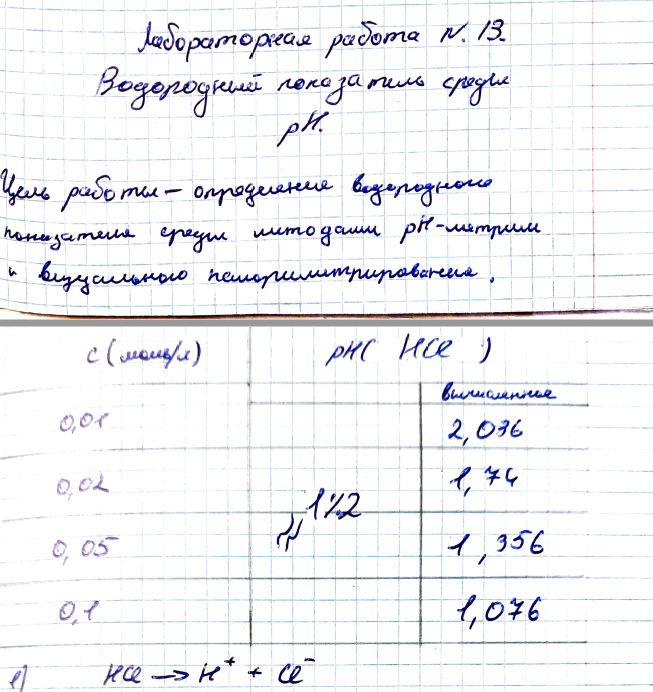 Лабораторная работа N. 13.
Водородный показатель среды
pH.
Цель работы – определение водородного
показателя среды методами pH-метрии
и визуального колориметрирования.
c (моль/л) pH( HCl )
вычисленные
0,01 2,036
0,02 1,74
≈ 1÷2
0,05 1,356
0,1 1,076
1) HCl → H⁺ + Cl⁻